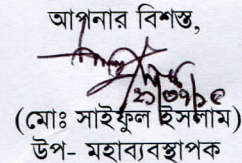 আপনার বিশস্ত,
(মোঃ সাইফুল ইসলাম)
উপ- মহাব্যবস্থাপক